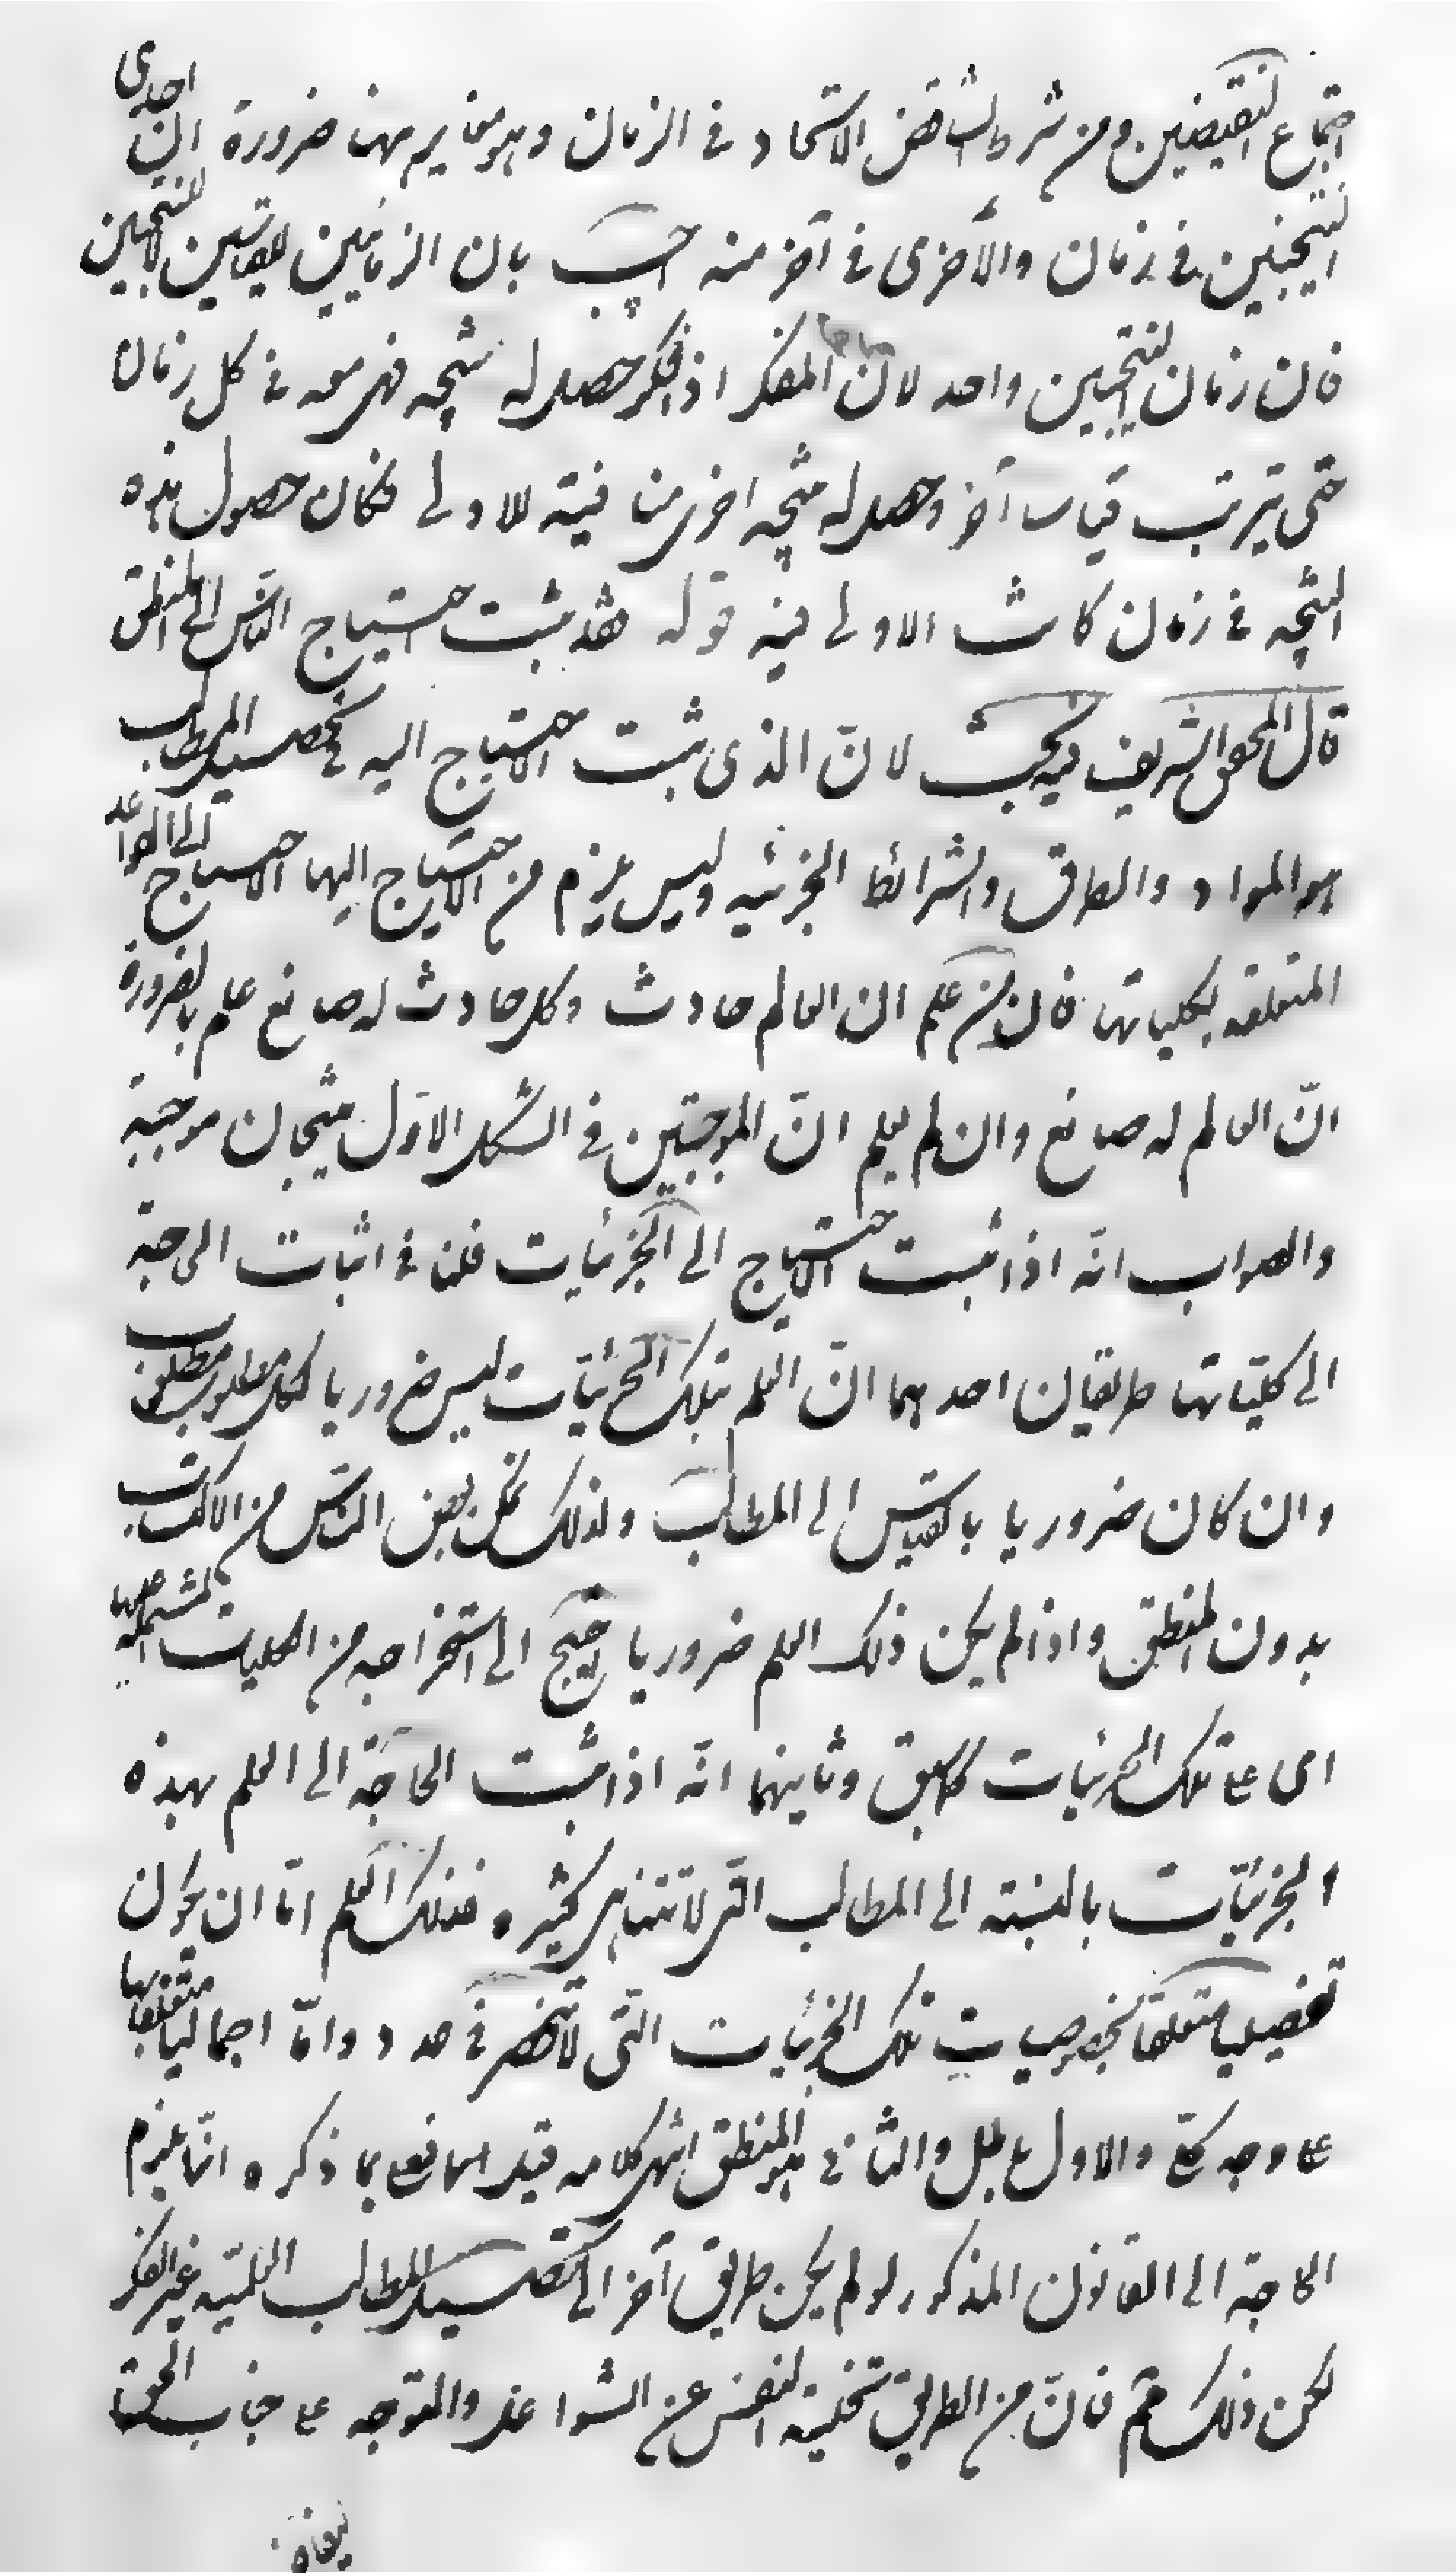 اجتماع النقيضين ومن شرط التناقض الاتحاد في الزمان وهو مغاير ههنا ضرورة ان احدى
النتيجتين في زمان والأخرى في آخر منه اجيب بان الزمانين للقياسين لا للنتيجتين
فان زمان النتيجتين واحد لان المفكر اذا فكر حصل له نتيجه فهى معه في كل زمان
حتى يترتب قياسا آخر وحصل له نتيجه اخرى منافية للاولى فكان حصول هذه
النتيجه في زمان كانت الاولى فيه قوله فقد ثبت احتياج الناس الى المنطق
قال المحقق الشريف فيه بحث لانّ الذى ثبت الاحتياج اليه في تحصيل المطالب
هو المواد والطرق والشرائط الجزئيه وليس يلزم من الاحتياج اليها الاحتياج الى القواعد
المتعلقه بكلياتها فان من علم ان العالم حادث وكل حادث له صانع علم بالضرورة
انّ العالم له صانع وان لم يعلم انّ الموجبتين في الشكل الاوّل ينتجان موجبة
والصواب انّه اذا ثبت الاحتياج الى الجزئيات فلنا في اثبات الحاجة
الى كليّاتها طريقان احدهما انّ العلم بتلك الجزئيّات ليس ضروريا لكل مطلوب مطلوب
وان كان ضروريا بالقياس الى المطالب ولذلك تمكن بعض الناس من الاكتساب
بدون المنطق واذا لم يكن ذلك العلم ضروريا احتيج الى استخراجه من الكليات المشتمله عليها
اى على تلك الجزئيات كما سبق وثانيهما انّه اذا ثبت الحاجة الى العلم بهذه
الجزئيّات بالنسبة الى المطالب التى لا تتناهى كثيره فذلك العلم امّا ان يكون
تفصيليا متعلقا بخصوصيات تلك الجزئيات التى لا تنحصر في عدد وامّا اجماليا متعلقا بها
على وجه كلّى والاول باطل والثاني هو المنطق انتهى كلامه قيل بما ذكره انّما يلزم
الحاجة الى القانون المذكور لو لم يكن طريق آخر الى تحصيل المطالب العلميّه غير الفكر
لكن ذلك ثم فانّ من الطريق تخلية النفس عن الشواغل والتوجه على جناب الحق تعا